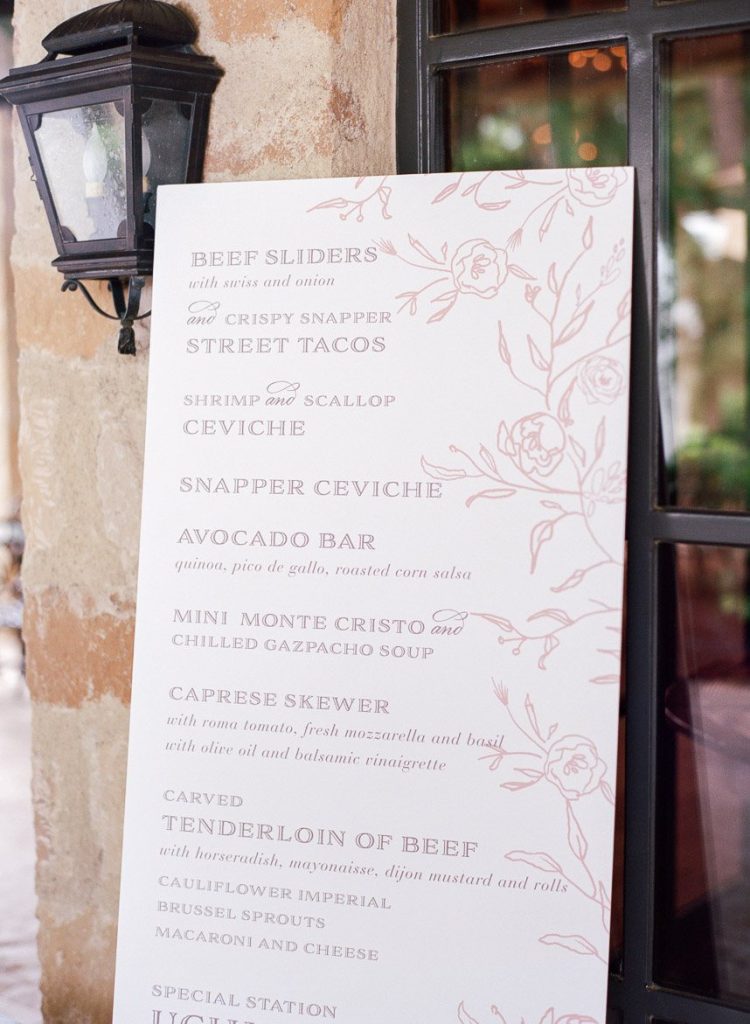 BEEF SLIDERS
with swiss and onion
and CRISPY SNAPPER
STREET TACOS
SHRIMP and SCALLOP
CEVICHE
SNAPPER CEVICHE
AVOCADO BAR
quinoa, pico de gallo, roasted corn salsa
MINI MONTE CRISTO and
CHILLED GAZPACHO SOUP
CAPRESE SKEWER
with roma tomato, fresh mozzarella and basil
with olive oil and balsamic vinaigrette
CARVED
TENDERLOIN OF BEEF
with horseradish, mayonaisse, dijon mustard and rolls
CAULIFLOWER IMPERIAL
BRUSSEL SPROUTS
MACARONI AND CHEESE
SPECIAL STATION